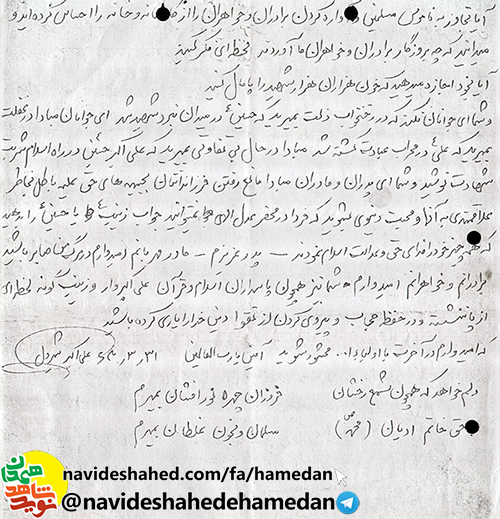 آیا تجاوز به ناموس مسلمین و آواره کردن برادران و خواهران را از کاشانه و خانه را احساس کرده‌اید و
میدانید که چه بروزگار برادران و خواهران ما آوردند لحظه‌ای فکر کنید
آیا بخود اجازه میدهید که خون هزاران هزار شهید را پامال کنند
و شما ای جوانان نکند که در رختخواب ذلت بمیرید که حسین در میدان نبرد شهید شد ای جوانان مبادا در غفلت
بمیرید که علی در محراب عبادت کشته شد مبادا در حال بی تفاوتی بمیرید که علی اکبر حسین در راه اسلام شربت
شهادت نوشید و شما ای پدران و مادران مبادا مانع رفتن فرزندانتان به جبهه های حق علیه باطل بخاطر
علاقمندی به آنها و محبت دنیوی بشوید که فردا در محضر عدل الهی نمیتوانید جواب زینب یا حسین را بدهید
که همه چیز خود را فدای حق و عدالت اسلام نمودند - پدر عزیزم - مادر مهربانم امیدوارم در مرگ من صابر باشید
برادرانم و خواهرانم امیدوارم شما نیز همچون پاسداران اسلام و قرآن علی اکبروار و زینب گونه لحظه‌ای
از پا ننشسته و در حفظ حجاب و پیروی کردن از تقوا دین خدا را یاری کرده باشید
که امیدوارم در آخرت با اولیاء ا... محشور شوید آمین یا رب العالمین ۳۱ر۳ر علی اکبر
دلم خواهد که همچون شمع رخشان فروزان چهره نور افشان بمیرم
بحق خاتم ادیان (محمد ص) بسان و بخون غلطان بمیرم
navideshahed.com/fa/hamedan
@navideshahedehamedan
نوید شاهد همدان